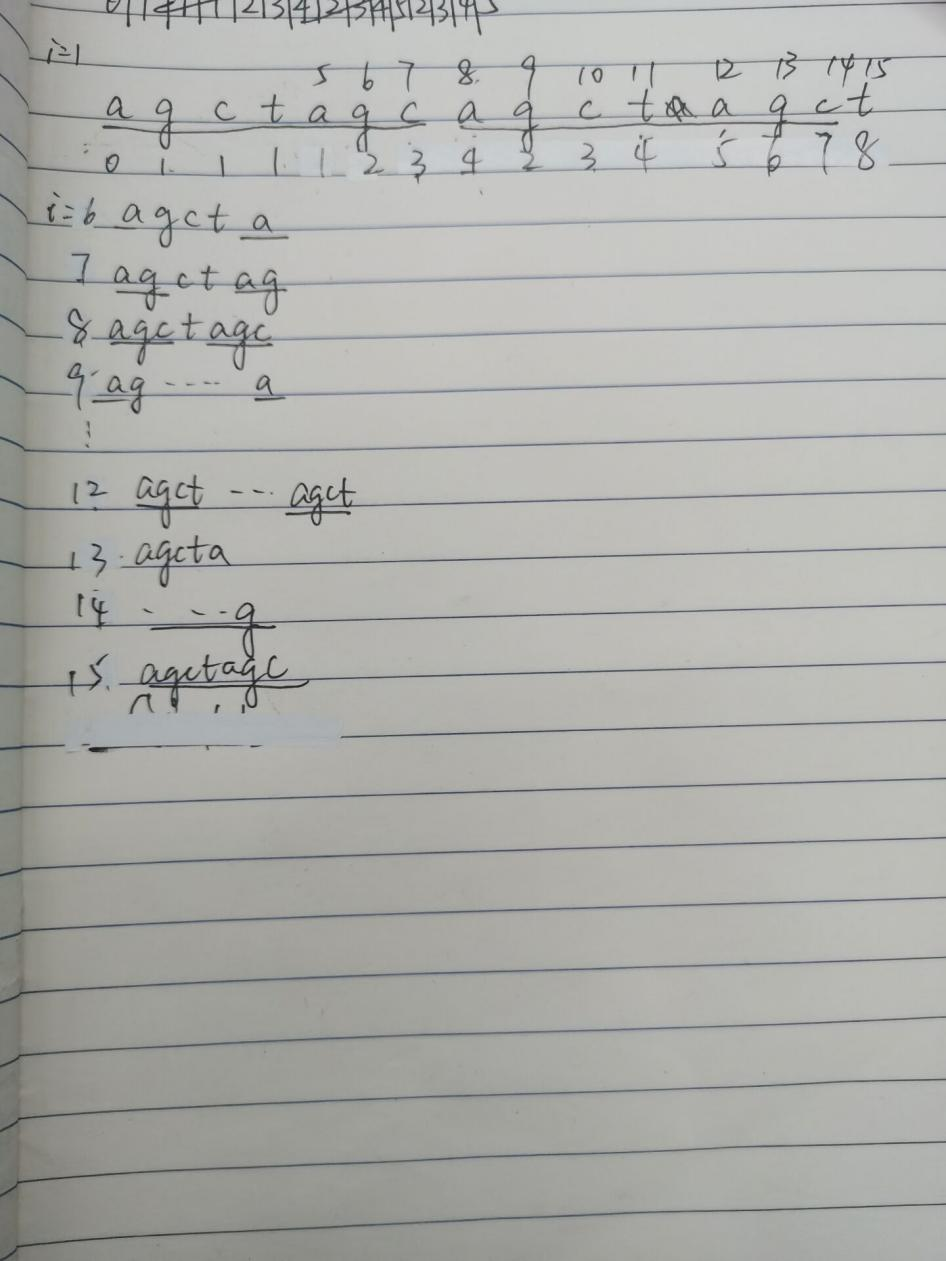 i=1
5 6 7 8 9 10 11 12 13 14 15
a g c t a g c a g c t a g c t
0 1 1 1 1 2 3 4 2 3 4 5 6 7 8
i=6 agct a
7 agct ag
8 agct agc
9 ag ---- a
⋮
12 agct --- agct
13. agcta
14 - --- g
15. agctagc